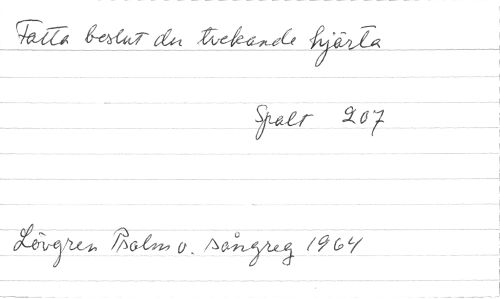 Fatta beslut du tvekande hjärta
Spalt 207
Lövgren Psalm o. sångreg 1964